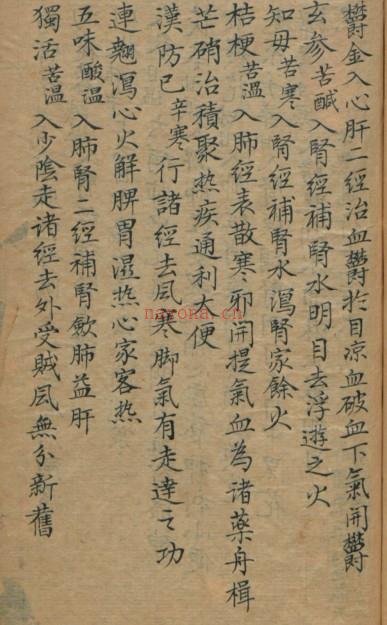 鬱金入心肝二經治血鬱於目凉血破血下氣開鬱
玄参苦醎入腎經補腎水明目去浮遊之火
知毋苦寒入腎經補腎水瀉腎家餘火
桔梗苦溫入肺經表散寒邪開提氣血為诸藥舟楫
芒硝治積聚热疾通利大便
漢防已辛寒行諸經去風寒脚氣有走達之功
連翹瀉心火解脾胃濕热心家客热
五味酸温入肺腎二經補腎歛肺益肝
獨活苦温入少陰走諸經去外受賊風無分新舊
nayona.cn